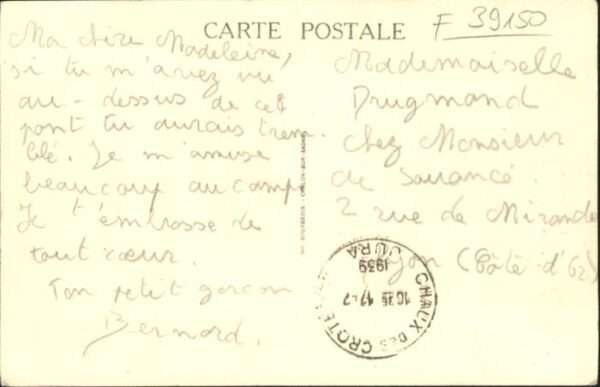 CARTE POSTALE
F 39150
Ma chère Madeleine,
si tu m'avez vu
au-dessus de ces
pont tu aurais trem-
blé. Je m'amuse
beaucoup au camp
Je t'embrasse de
tout cœur.
Ton petit garçon
Bernard.
Mademoiselle
Drugmand
chez Monsieur
de Sarrancé
2 rue de Mirande
Dijon (Côte d'Or)
CHAUX DES CROTE
JURA
1939